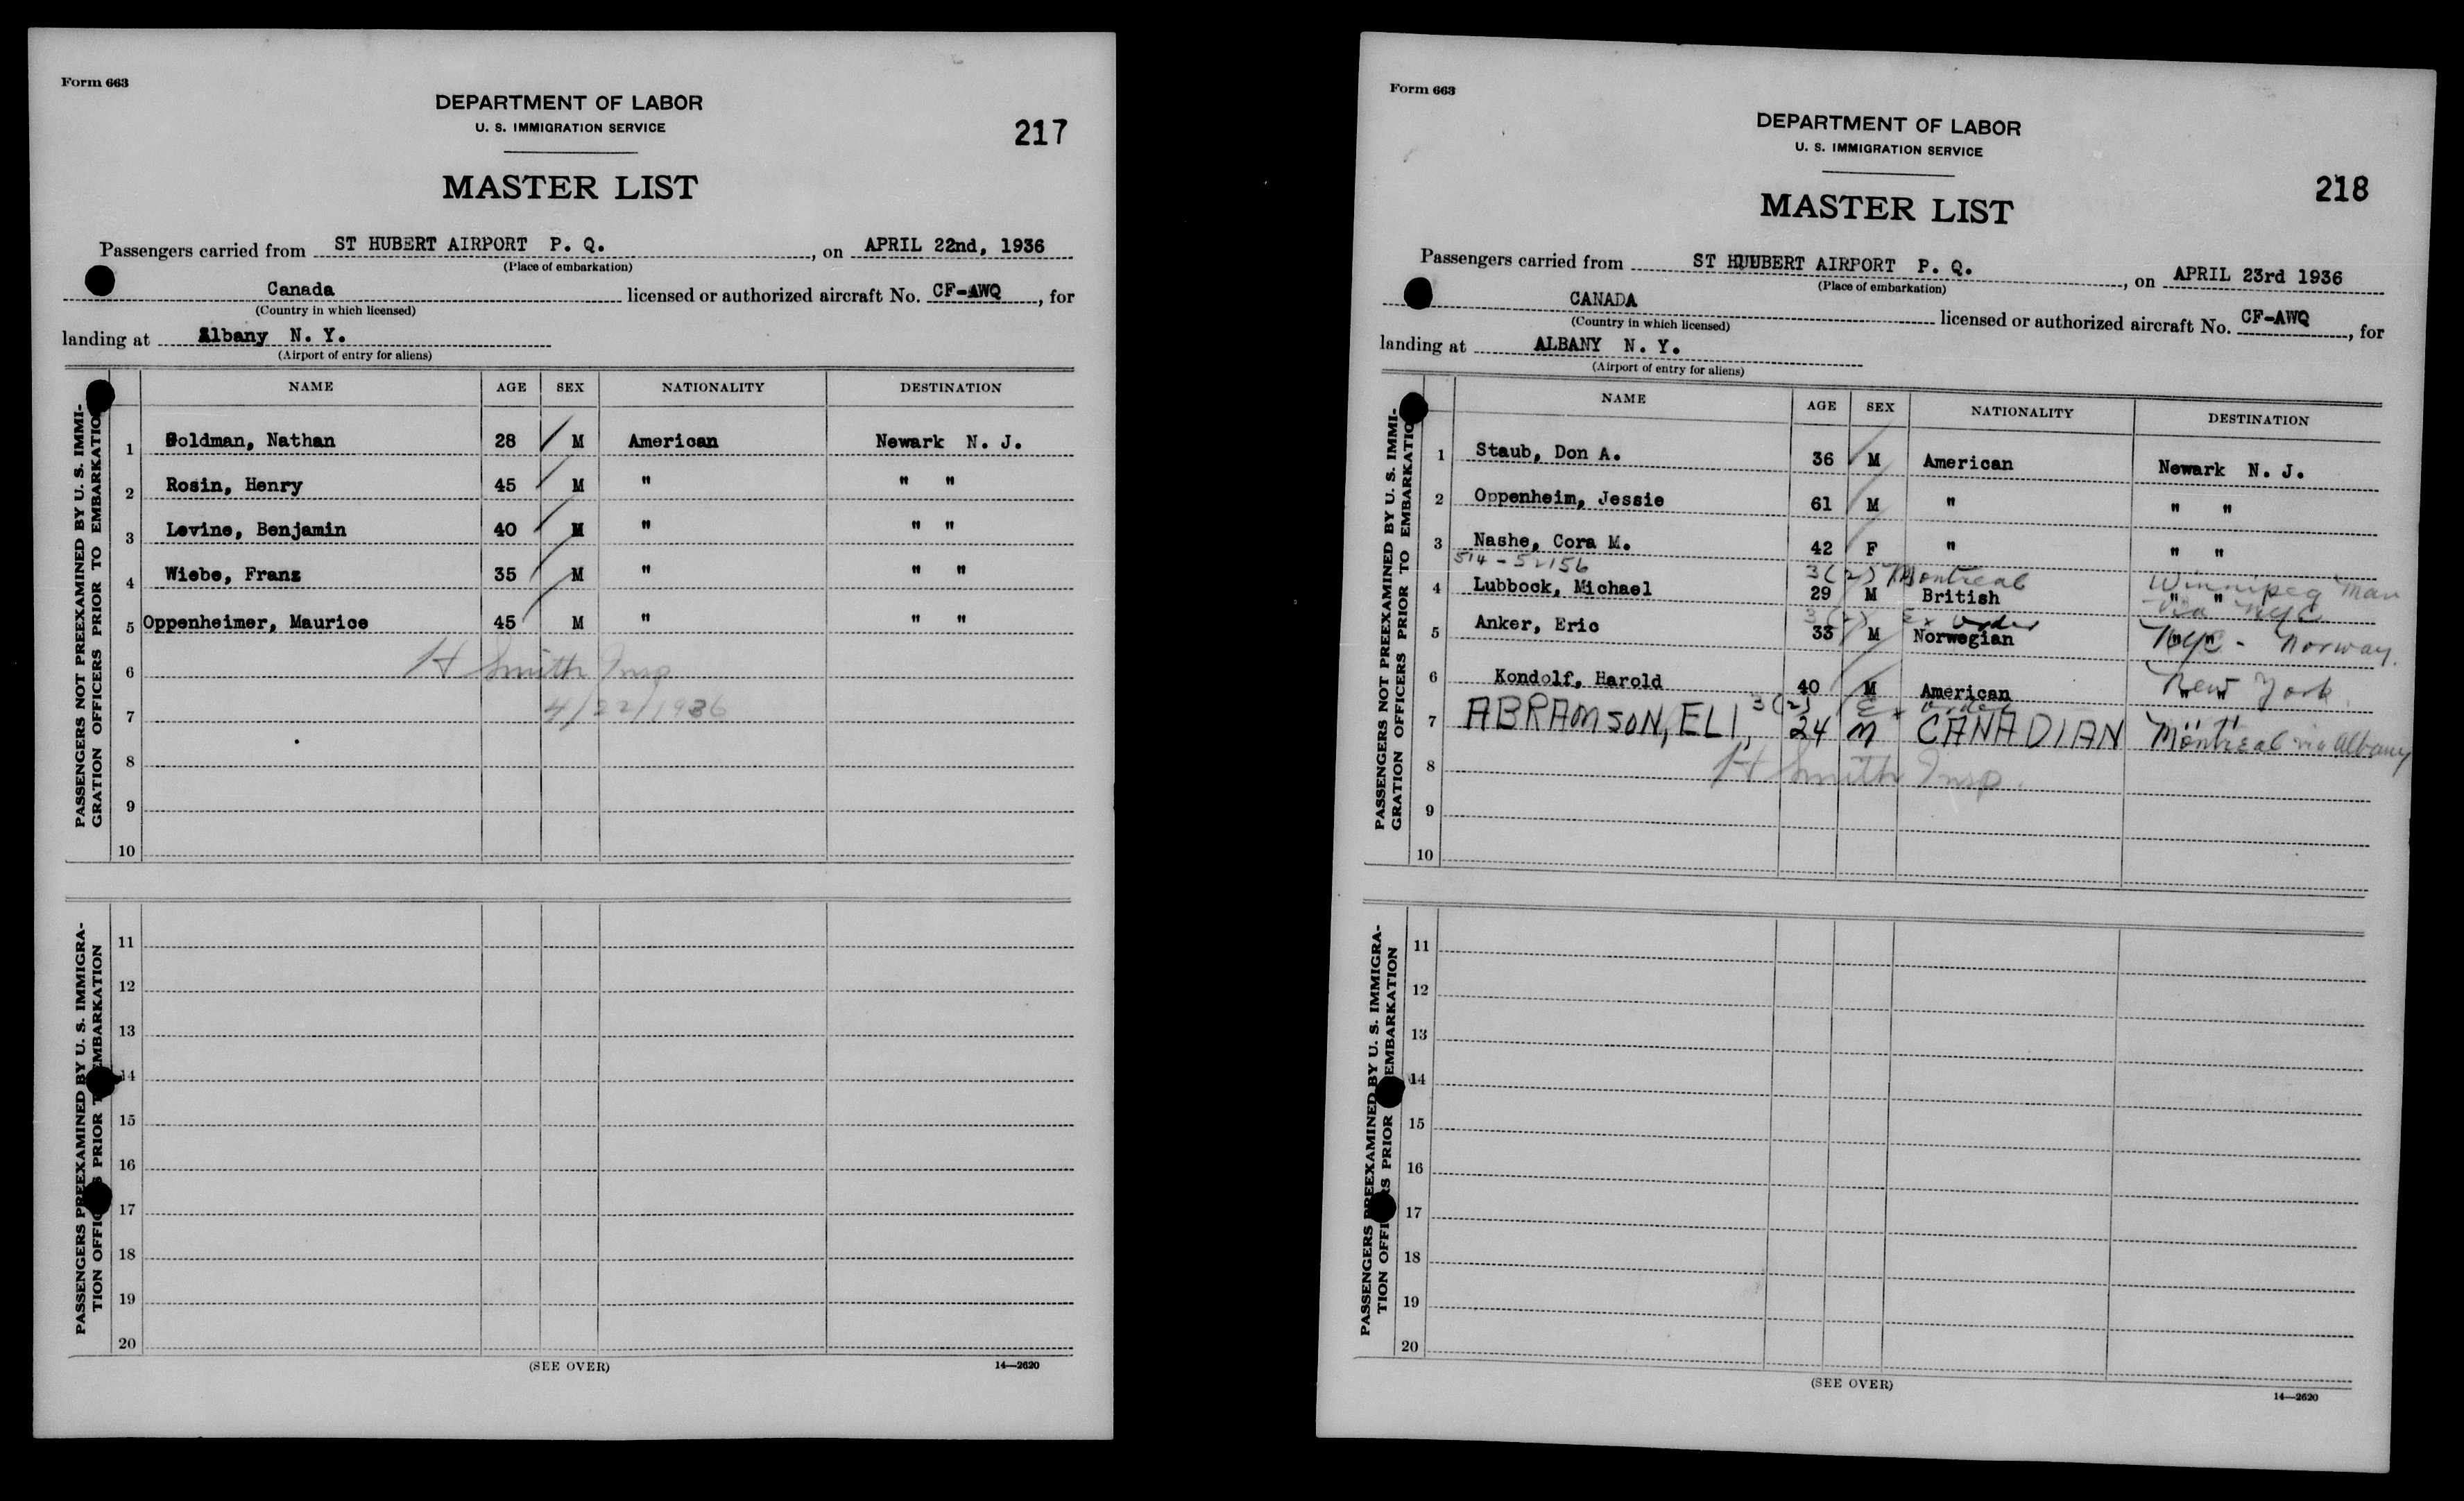 Form 663
DEPARTMENT OF LABOR
U. S. IMMIGRATION SERVICE
217
MASTER LIST
Passengers carried from ST HUBERT AIRPORT P. Q. , on APRIL 22nd, 1936
(Place of embarkation)
Canada licensed or authorized aircraft No. CF-AWQ , for
(Country in which licensed)
landing at Albany N. Y.
(Airport of entry for aliens)
PASSENGERS NOT PREEXAMINED BY U. S. IMMI-
GRATION OFFICERS PRIOR TO EMBARKATION
NAME AGE SEX NATIONALITY DESTINATION
1 Goldman, Nathan 28 M American Newark N. J.
2 Rosin, Henry 45 M " " "
3 Levine, Benjamin 40 M " " "
4 Wiebe, Franz 35 M " " "
5 Oppenheimer, Maurice 45 M " " "
6 H Smith Insp
7 4/22/1936
8
9
10
PASSENGERS PREEXAMINED BY U. S. IMMIGRA-
TION OFFICERS PRIOR TO EMBARKATION
11
12
13
14
15
16
17
18
19
20
(SEE OVER) 14—2620
Form 663
DEPARTMENT OF LABOR
U. S. IMMIGRATION SERVICE
218
MASTER LIST
Passengers carried from ST HUUBERT AIRPORT P. Q. , on APRIL 23rd 1936
(Place of embarkation)
CANADA licensed or authorized aircraft No. CF-AWQ , for
(Country in which licensed)
landing at ALBANY N. Y.
(Airport of entry for aliens)
PASSENGERS NOT PREEXAMINED BY U. S. IMMI-
GRATION OFFICERS PRIOR TO EMBARKATION
NAME AGE SEX NATIONALITY DESTINATION
1 Staub, Don A. 36 M American Newark N. J.
2 Oppenheim, Jessie 61 M " " "
3 Nashe, Cora M. 42 F " " "
514-52156 3(2) Montreal Winnipeg Man
4 Lubbock, Michael 29 M British " "
3(2) Ex Order via NYC
5 Anker, Eric 33 M Norwegian " " NYC - Norway.
6 Kondolf, Harold 40 M American " " New York
3(2) Ex Order
7 ABRAMSON, ELI, 24 M CANADIAN " " Montreal via Albany
8 H Smith Insp.
9
10
PASSENGERS PREEXAMINED BY U. S. IMMIGRA-
TION OFFICERS PRIOR TO EMBARKATION
11
12
13
14
15
16
17
18
19
20
(SEE OVER) 14—2620